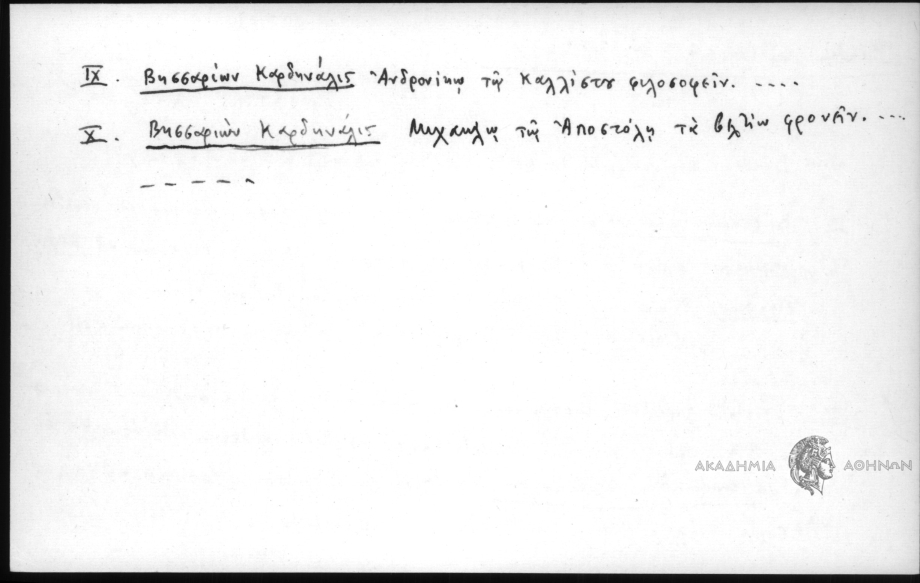 IX. Βησσαρίων Καρδηνάλις Ἀνδρονίκῳ τῷ Καλλίστου φιλοσοφεῖν. ....
X. Βησσαριὼν Καρδηνάλις Μιχαήλῳ τῷ Ἀποστόλῃ τὰ βελτίω φρονεῖν. ...
ΑΚΑΔΗΜΙΑ ΑΘΗΝΩΝ